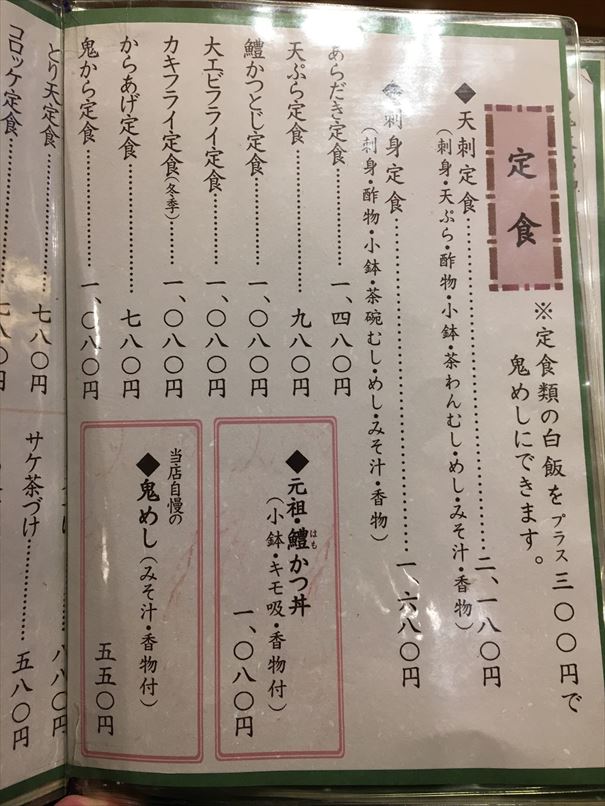 定食
※定食類の白飯をプラス三〇〇円で
鬼めしにできます。
天刺定食……二、一八〇円
(刺身・天ぷら・酢物・小鉢・茶わんむし・めし・みそ汁・香物)
刺身定食……一、六八〇円
(刺身・酢物・小鉢・茶碗むし・めし・みそ汁・香物)
あらだき定食……一、四八〇円
天ぷら定食……九八〇円
鱧かつとじ定食……一、〇八〇円
大エビフライ定食……一、〇八〇円
カキフライ定食(冬季)……一、〇八〇円
からあげ定食……七八〇円
鬼から定食……一、〇八〇円
とり天定食……七八〇円
コロッケ定食……七八〇円
◆元祖・鱧かつ丼
はも
(小鉢・キモ吸・香物付)
一、〇八〇円
当店自慢の
◆鬼めし(みそ汁・香物付)
五五〇円
八八〇円
サケ茶づけ……五八〇円